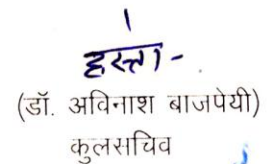 हस्ता-
(डॉ. अविनाश बाजपेयी)
कुलसचिव